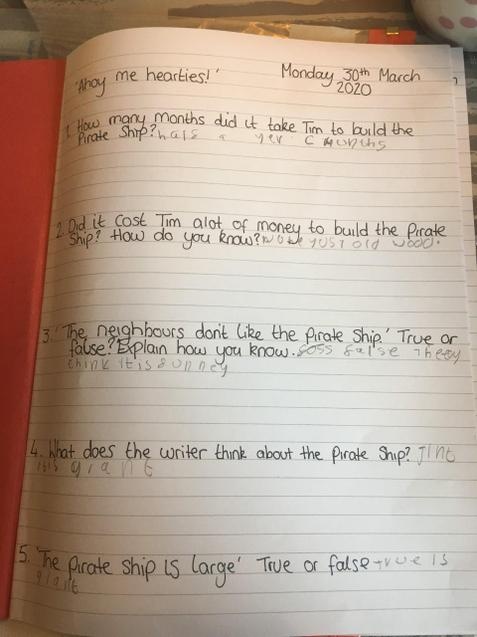 'Ahoy me hearties!'
Monday 30th March
2020
1. How many months did it take Tim to build the
Pirate Ship? half a yer 6 months
2. Did it cost Tim alot of money to build the Pirate
Ship? How do you know? yust old wood.
3. 'The neighbours don't like the Pirate Ship.' True or
false? Explain how you know. false Theey
think it is sunney
4. What does the writer think about the Pirate Ship? Jint
itis giant
5. 'The Pirate Ship is large' True or false true is
giant